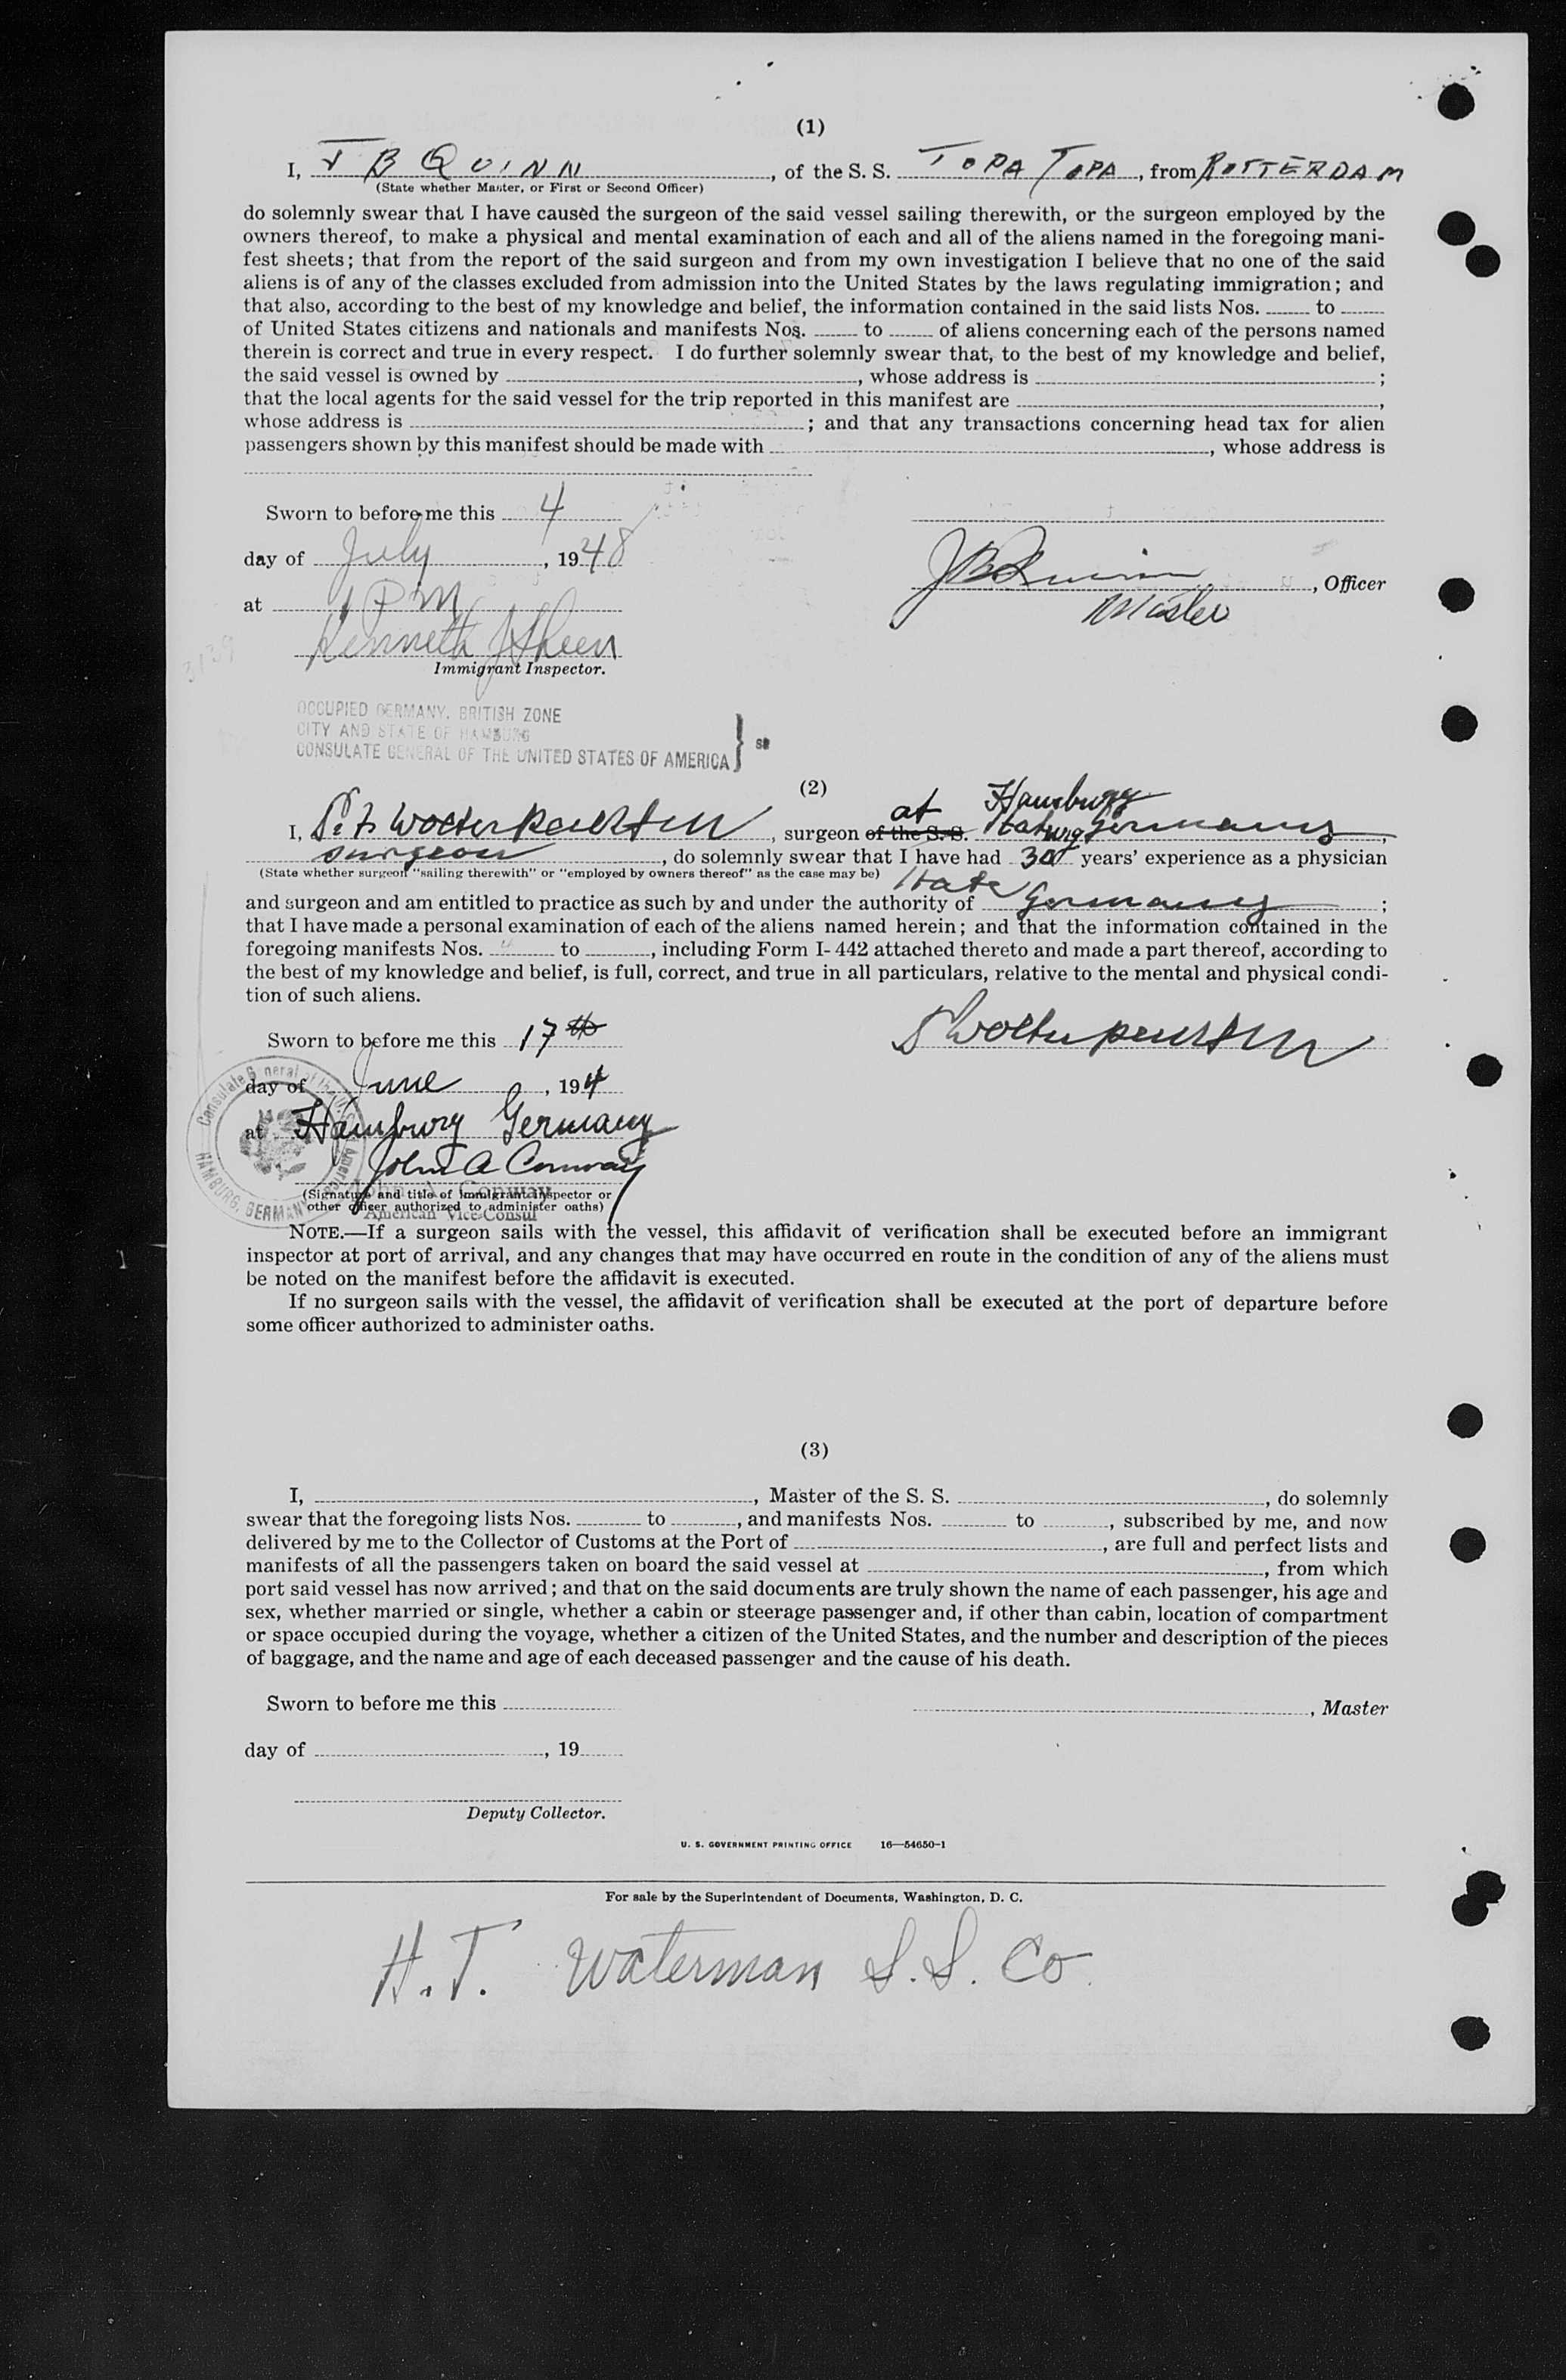 (1)
I, J B QUINN, of the S. S. TOPA TOPA, from ROTTERDAM
(State whether Master, or First or Second Officer)
do solemnly swear that I have caused the surgeon of the said vessel sailing therewith, or the surgeon employed by the
owners thereof, to make a physical and mental examination of each and all of the aliens named in the foregoing mani-
fest sheets; that from the report of the said surgeon and from my own investigation I believe that no one of the said
aliens is of any of the classes excluded from admission into the United States by the laws regulating immigration; and
that also, according to the best of my knowledge and belief, the information contained in the said lists Nos. ____ to ____
of United States citizens and nationals and manifests Nos. ____ to ____ of aliens concerning each of the persons named
therein is correct and true in every respect. I do further solemnly swear that, to the best of my knowledge and belief,
the said vessel is owned by ____, whose address is ____;
that the local agents for the said vessel for the trip reported in this manifest are ____,
whose address is ____; and that any transactions concerning head tax for alien
passengers shown by this manifest should be made with ____, whose address is
Sworn to before me this 4
day of July, 1948
JB Quinn, Officer
Master
at 1 PM
Kenneth J Sheen
Immigrant Inspector.
3139
OCCUPIED GERMANY, BRITISH ZONE
CITY AND STATE OF HAMBURG
CONSULATE GENERAL OF THE UNITED STATES OF AMERICA } ss
(2)
at Hamburg
I, , surgeon of the S. S. Germany,
surgeon, do solemnly swear that I have had 30 years' experience as a physician
(State whether surgeon "sailing therewith" or "employed by owners thereof" as the case may be)
State
and surgeon and am entitled to practice as such by and under the authority of Germany;
that I have made a personal examination of each of the aliens named herein; and that the information contained in the
foregoing manifests Nos. ____ to ____, including Form I-442 attached thereto and made a part thereof, according to
the best of my knowledge and belief, is full, correct, and true in all particulars, relative to the mental and physical condi-
tion of such aliens.
Sworn to before me this 17th
day of June, 194
at Hamburg Germany
John A Conway
John A. Conway
(Signature and title of immigrant inspector or
other officer authorized to administer oaths)
American Vice Consul
Consulate General of the U. S. of America
HAMBURG, GERMANY
NOTE.—If a surgeon sails with the vessel, this affidavit of verification shall be executed before an immigrant
inspector at port of arrival, and any changes that may have occurred en route in the condition of any of the aliens must
be noted on the manifest before the affidavit is executed.
If no surgeon sails with the vessel, the affidavit of verification shall be executed at the port of departure before
some officer authorized to administer oaths.
(3)
I, ____, Master of the S. S. ____, do solemnly
swear that the foregoing lists Nos. ____ to ____, and manifests Nos. ____ to ____, subscribed by me, and now
delivered by me to the Collector of Customs at the Port of ____, are full and perfect lists and
manifests of all the passengers taken on board the said vessel at ____, from which
port said vessel has now arrived; and that on the said documents are truly shown the name of each passenger, his age and
sex, whether married or single, whether a cabin or steerage passenger and, if other than cabin, location of compartment
or space occupied during the voyage, whether a citizen of the United States, and the number and description of the pieces
of baggage, and the name and age of each deceased passenger and the cause of his death.
Sworn to before me this ____
____, Master
day of ____, 19__
Deputy Collector.
U. S. GOVERNMENT PRINTING OFFICE 16—54650-1
For sale by the Superintendent of Documents, Washington, D. C.
H.T. Waterman S.S. Co.